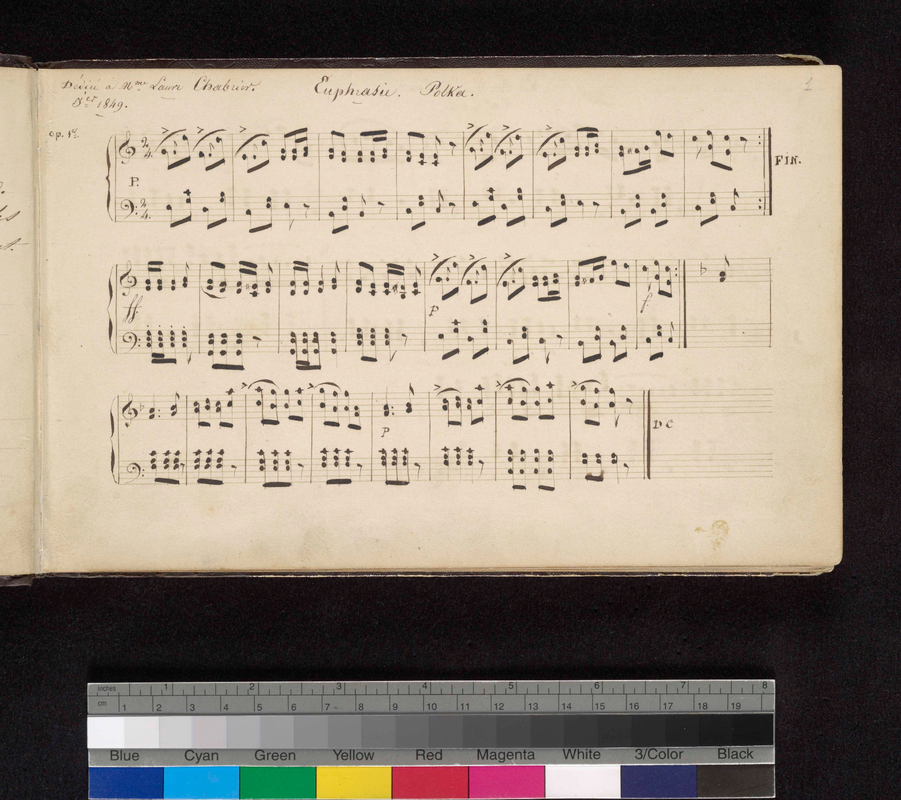 Dédié à Mme Laure Chabrier. Euphrasie. Polka. 1
Xbre 1849.
op. 1o.
2 4
P.
2 4
FIN.
ff
P
f
P
DC
inches 1 2 3 4 5 6 7 8
cm 1 2 3 4 5 6 7 8 9 10 11 12 13 14 15 16 17 18 19
Blue Cyan Green Yellow Red Magenta White 3/Color Black